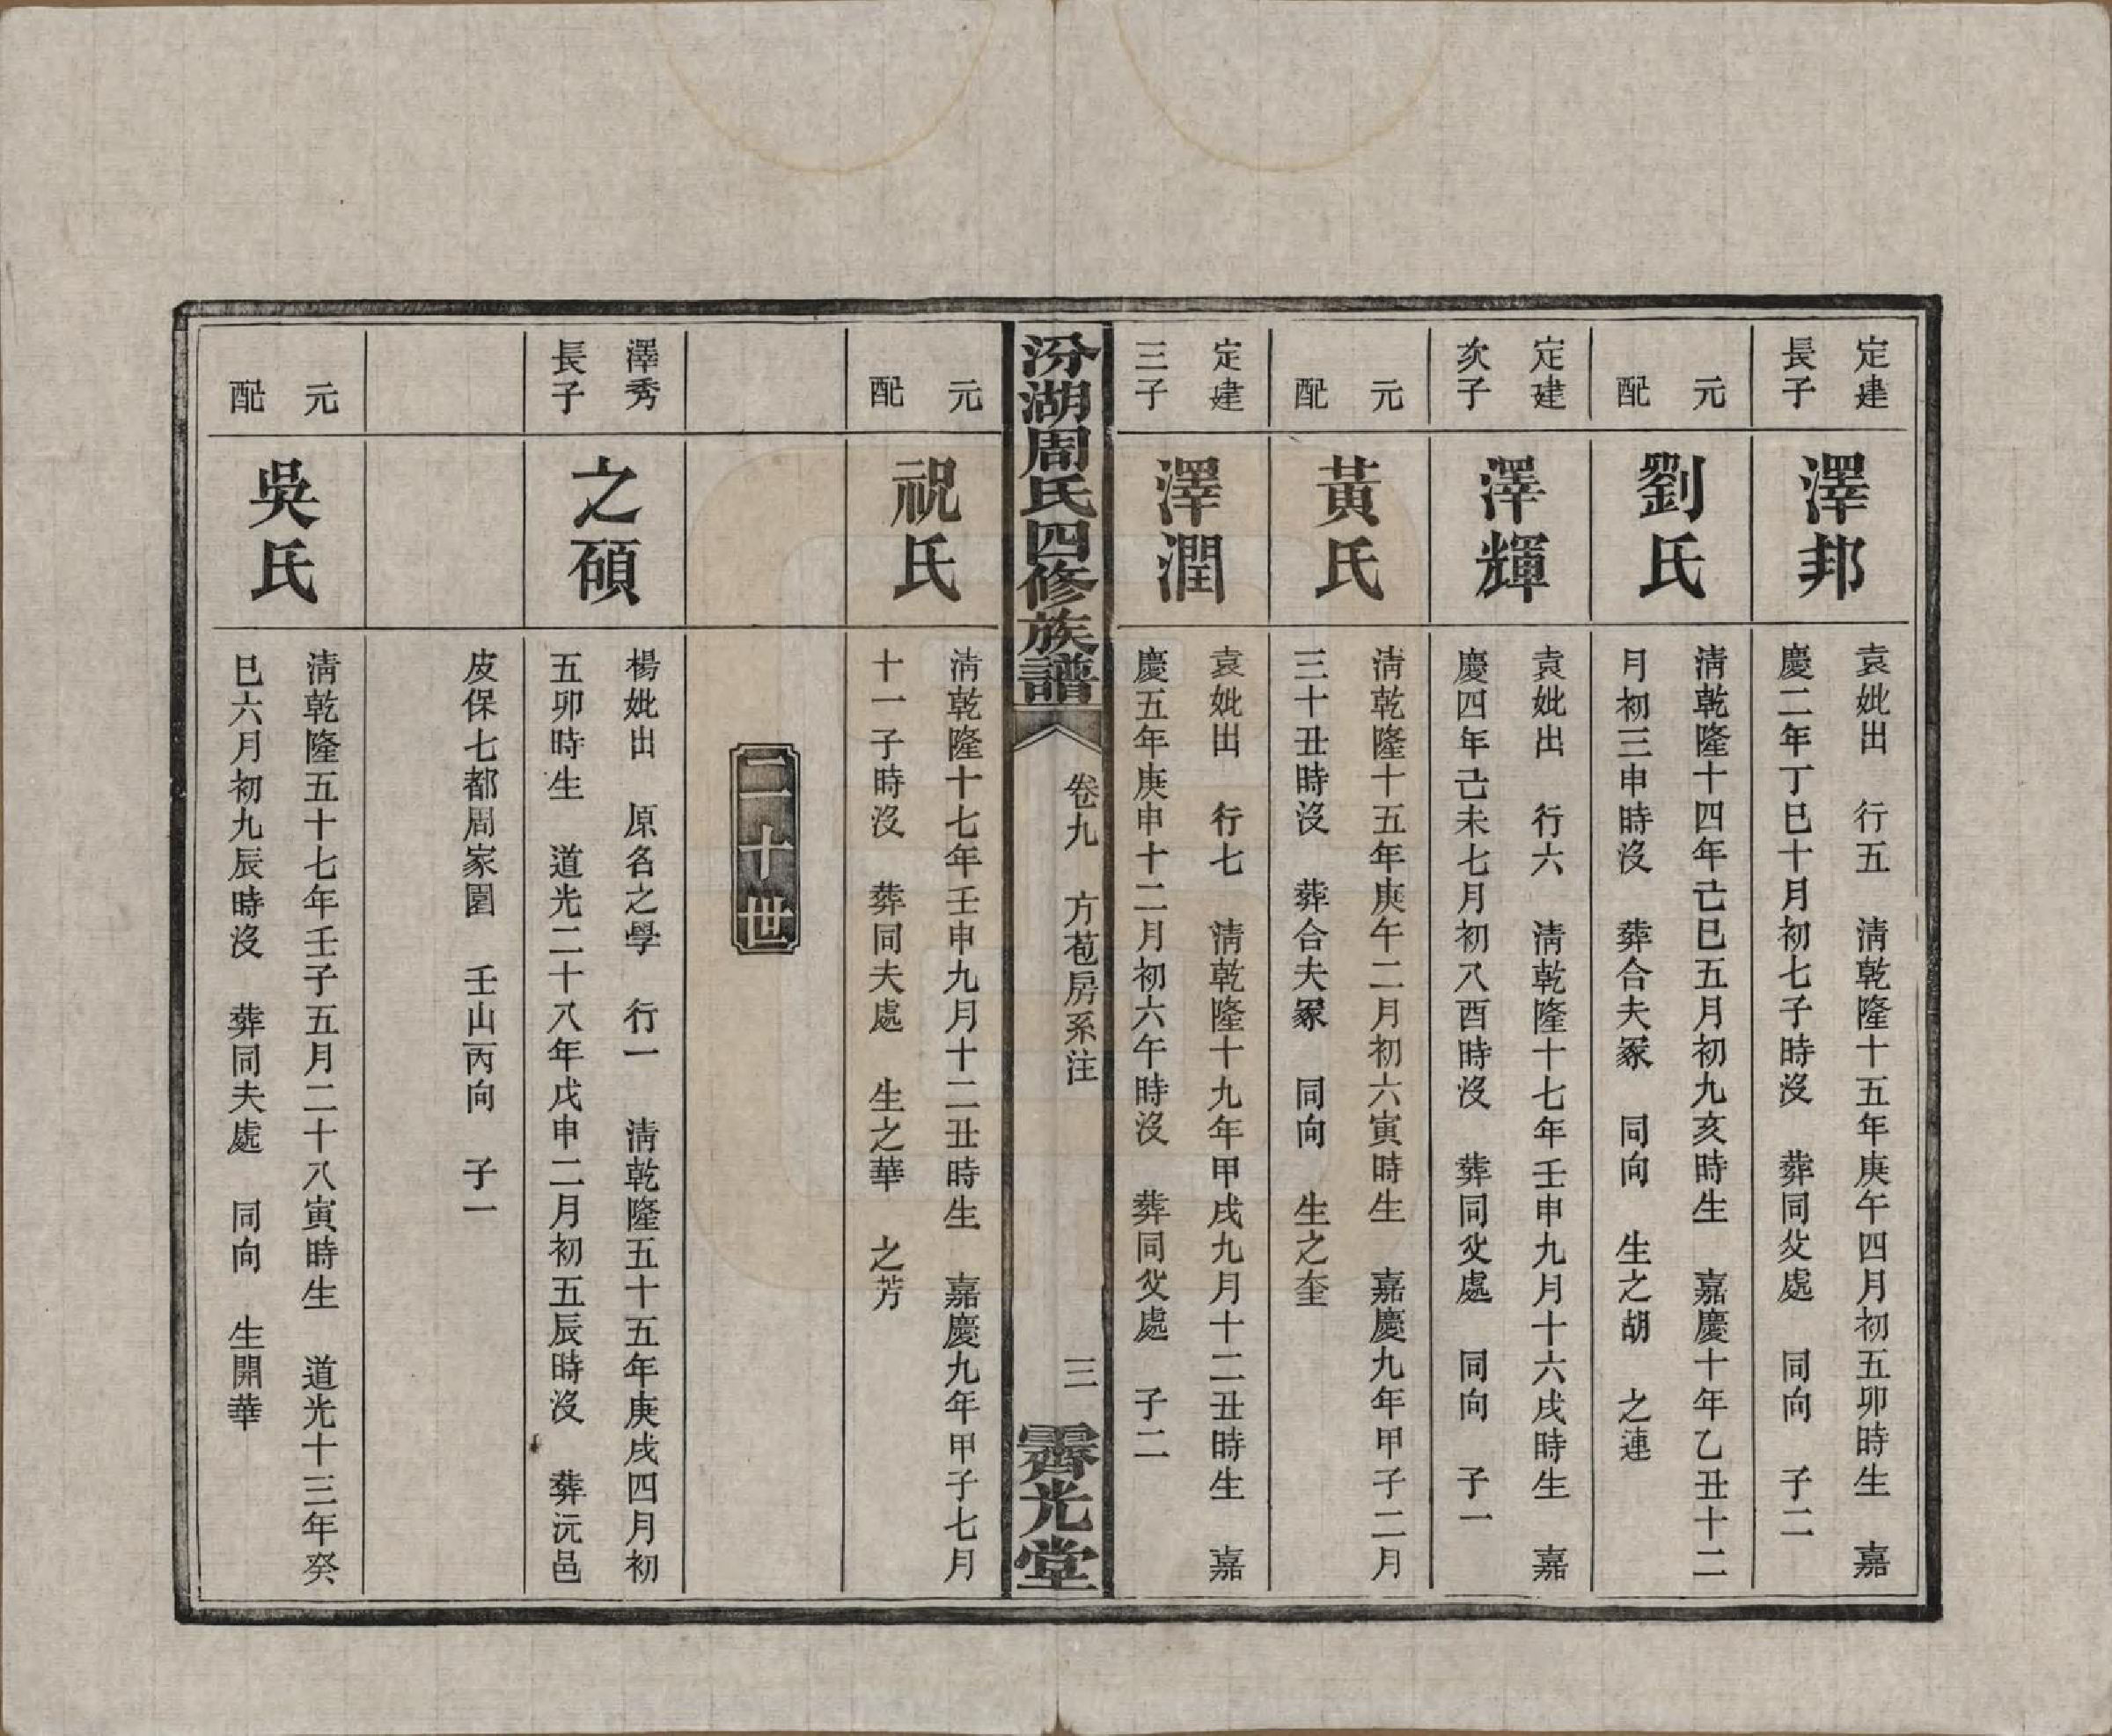 定建
長子
澤邦
袁妣出　行五　清乾隆十五年庚午四月初五卯時生　嘉
慶二年丁巳十月初七子時沒　葬同父處　同向　子二
元
配
劉氏
清乾隆十四年己巳五月初九亥時生　嘉慶十年乙丑十二
月初三申時沒　葬合夫冢　同向　生之胡　之連
定建
次子
澤輝
袁妣出　行六　清乾隆十七年壬申九月十六戌時生　嘉
慶四年己未七月初八酉時沒　葬同父處　同向　子一
元
配
黃氏
清乾隆十五年庚午二月初六寅時生　嘉慶九年甲子二月
三十丑時沒　葬合夫冢　同向　生之奎
定建
三子
澤潤
袁妣出　行七　清乾隆十九年甲戌九月十二丑時生　嘉
慶五年庚申十二月初六午時沒　葬同父處　子二
汾湖周氏四修族譜
卷九　方苞房系注
三
霽光堂
元
配
祝氏
清乾隆十七年壬申九月十二丑時生　嘉慶九年甲子七月
十一子時沒　葬同夫處　生之華　之芳
二十世
澤秀
長子
之碩
楊妣出　原名之學　行一　清乾隆五十五年庚戌四月初
五卯時生　道光二十八年戊申二月初五辰時沒　葬沅邑
皮保七都周家園　壬山丙向　子一
元
配
吳氏
清乾隆五十七年壬子五月二十八寅時生　道光十三年癸
巳六月初九辰時沒　葬同夫處　同向　生開華